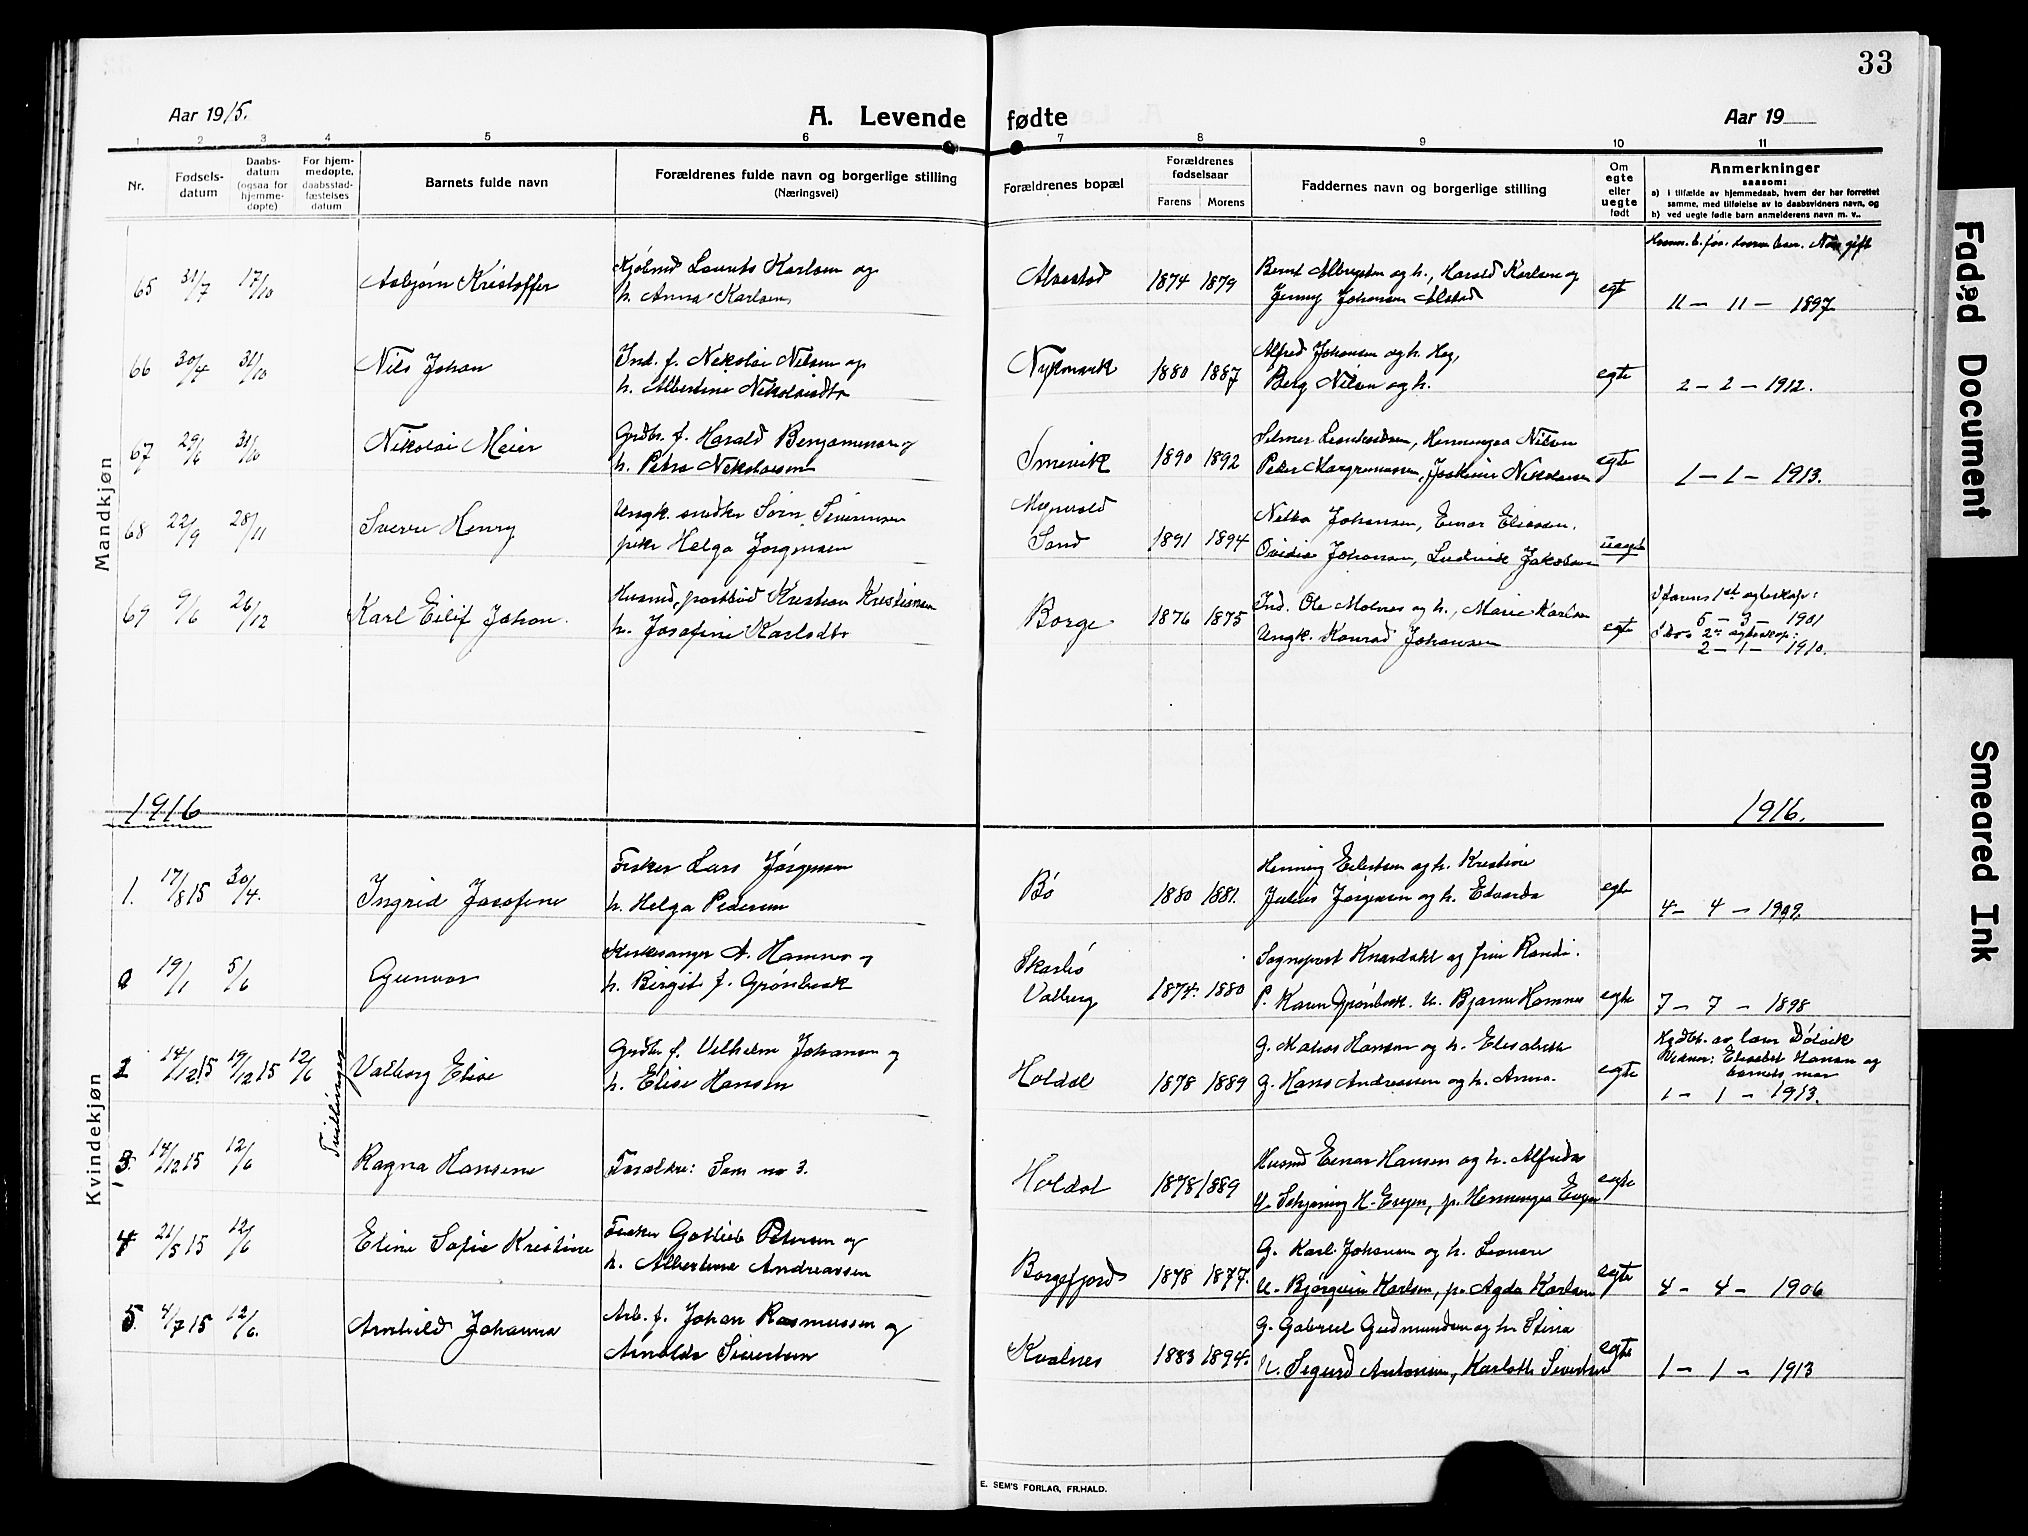 33
Aar 1915.
A. Levende fødte
Aar 19
1 2 3 4 5 6 7 8 9 10 11
Nr.
Fødsels-
datum
Daabs-
datum
(ogsaa for
hjemme-
døpte)
For hjem-
medøpte,
daabsstad-
fæstelses
datum
Barnets fulde navn
Forældrenes fulde navn og borgerlige stilling
(Næringsvei)
Forældrenes bopæl
Forældrenes
fødselsaar
Farens Morens
Faddernes navn og borgerlige stilling
Om
egte
eller
uegte
født
Anmerkninger
saasom:
a) i tilfælde av hjemmedaab, hvem der har forrettet
samme, med tilføielse av to daabsvidners navn, og
b) ved uegte fødte barn anmelderens navn m. v..
Mandkjøn
65 31/7 17/10 Asbjørn Kristoffer
Laurits Karlsen og
h. Anna Karlsen,
Alvestad 1874 1879
Bernt Albrigtsen og h., Harald Karlsen og
Jenny Johansen Alstad
egte
gift
11 - 11 - 1897
66 30/4 31/10 Nils Johan
Ind. f. Nikolai Nilsen og
h. Albertine Nikolaisdtr
Nykmark 1880 1887
Alfred Johansen og h. Hag,
Berg Nilsen og h.
egte
2 - 2 - 1912.
67 29/6 31/10 Nikolai Meier
Grdbr. f. Harald Benjaminsen og
h. Petra Nikolaisen
Smevik 1890 1892
Nilsen
Peter Joakine Nikolaisen
egte
1 - 1 - 1913.
68 22/9 28/11 Sverre Henry
Ungk. snedker Sørn. Sivertsen
pike Helga Jørgensen
Sand 1891 1894
Johansen, Einar Eliassen.
Ovidia Johansen, Ludvik Jakobsen
uegte
69 9/6 26/12 Karl Eilif Johan.
Husmd, postbud Kristian Kristiansen
h. Josefine Karlsdtr
Borge 1876 1875
Ind. Ole Molnes og h., Marie Karlsen
Ungk. Konrad Johansen
egte
I farens 1st egteskap:
5 - 3 - 1901
2 - 1 - 1910.
1916
1916.
Kvindekjøn
1. 17/8 15 30/4. Ingrid Josefine
Fisker Lars Jørgensen
h. Helga Pedersen
Bø 1880 1881.
Henning Eilertsen og h. Kristine
Julius Jørgensen og h. Edvarda
egte
4 - 4 - 1909.
19/1 5/6 Gunvor
Kirkesanger A. Hamnes og
h. Birgit f. Grønbeck
Skarbø
Valberg 1874. 1880
Sogneprest Knardahl og frue Randi.
P. Karen Grønbeck. U. Bjarne Hamnes
egte
7 - 7 - 1898
2 14/12 15 19/12 15 12/6 Valborg Elise
Tvillinger
Grdbr f. Vilhelm Johansen og
h. Elise Hansen
Holdal 1878 1889
G. Matias Hansen og h. Elisabeth
G. Hans Andreassen og h. Anna.
egte
Hjdbt. av Lars Dolvik
Vidner: Elisabet Hansen og
barnets mor
1 - 1 - 1913.
3. 14/12 15 12/6 Ragna Hansine
Forældre: Som no 3.
Holdal 1878 1889
Husmd Einar Hansen og h. Alfrida
egte
4 21/5 15 12/6 Eline Sofie Kristine
Fisker Gotlieb Petersen og
h. Albertine Andreassen
Borgefjord 1878 1877.
G. Karl Johansen og h. Leonore
U. Bjørgvin Karlsen, p. Agda Karlsen
egte
4 - 4 - 1906
5. 4/7 15 12/6. Arnhild Johanna
Arb. f. Johan Rasmussen og
Arnolda Sivertsen
Kvalnes 1883 1894.
G. Gabriel Gudmundsen og h. Stina
U. Sigurd Antonsen, Karlotte Sivertsen
egte
1 - 1 - 1913
E. SEM'S FORLAG, FR.HALD.
Faded Document
Smeared Ink